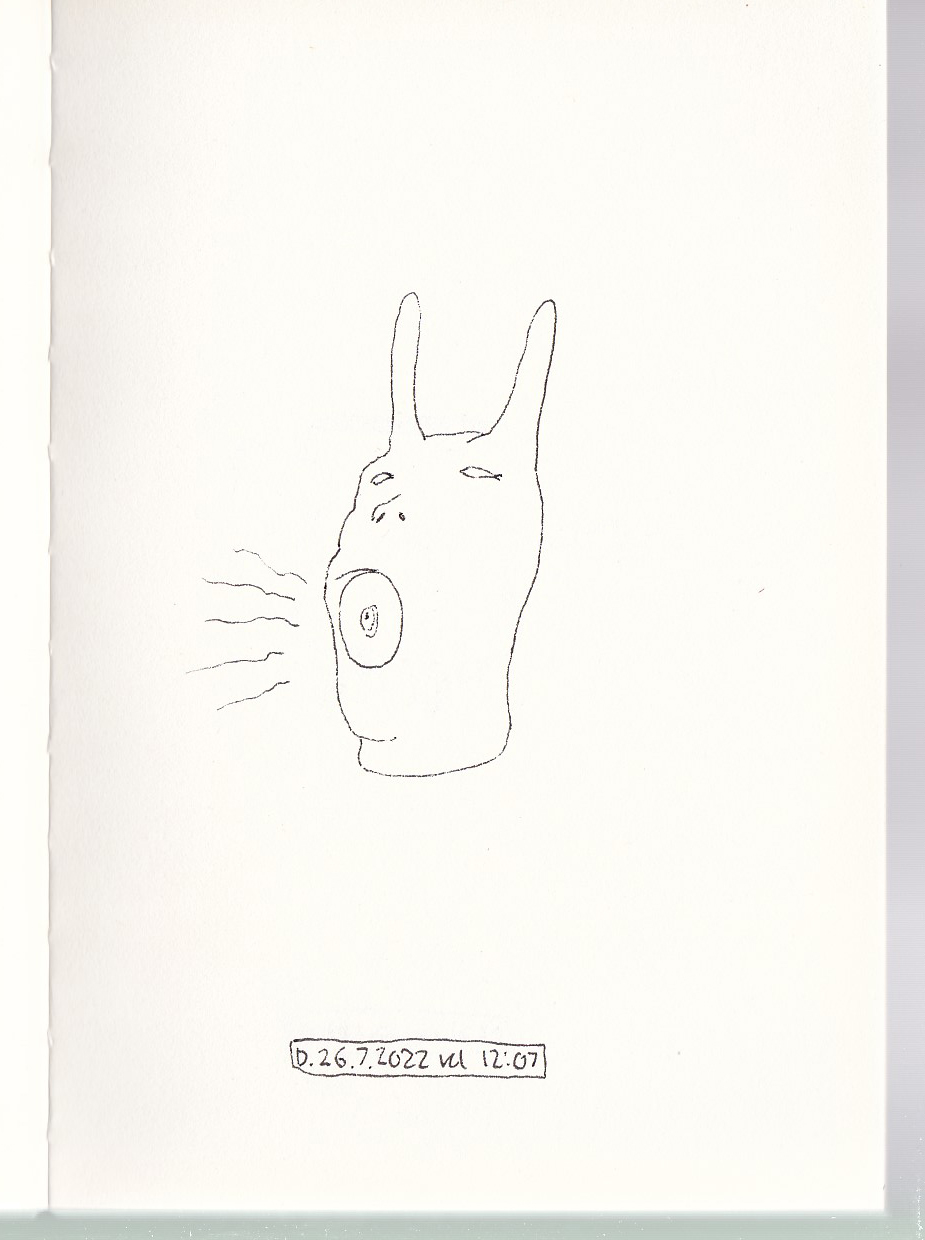 D.26.7.2022 kl 12:07